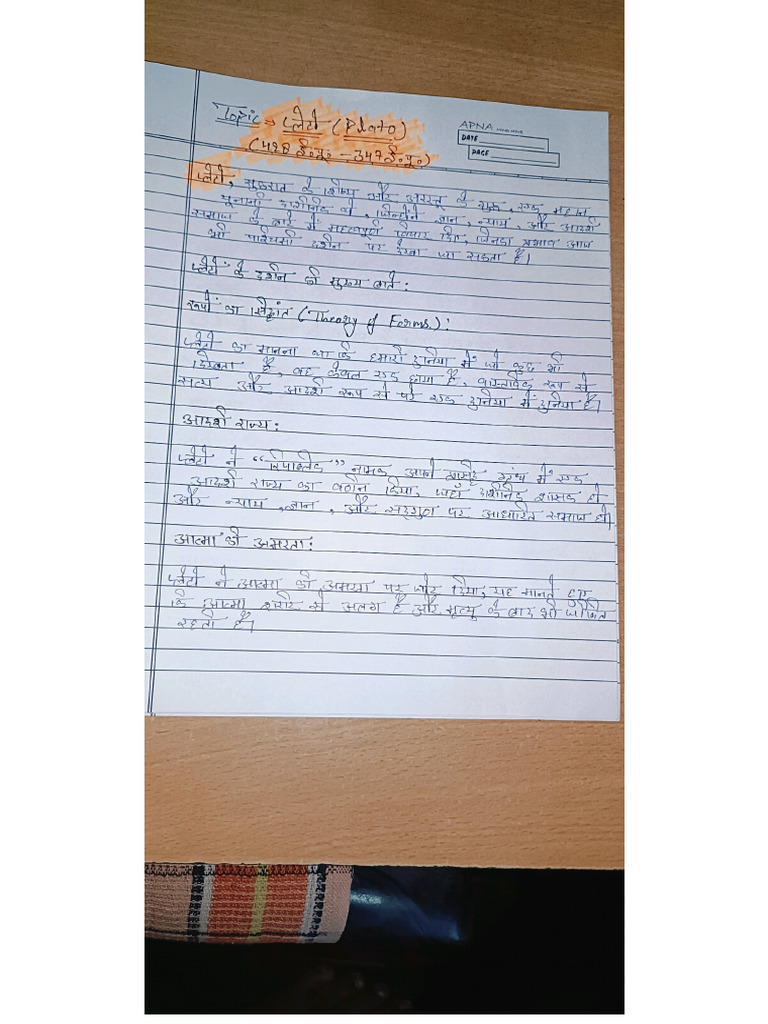 Topic → प्लेटो (Plato)
(428 ई.पू. - 347 ई.पू.)
APNA
DATE
PAGE
प्लेटो, सुकरात के शिष्य और अरस्तू के गुरु, एक महान
यूनानी दार्शनिक थे, जिन्होंने ज्ञान, न्याय, और आदर्श
समाज के बारे में महत्वपूर्ण विचार दिए, जिनका प्रभाव आज
भी पश्चिमी दर्शन पर देखा जा सकता है।
प्लेटो के दर्शन की मुख्य बातें:
रूपों का सिद्धांत (Theory of Forms.):
प्लेटो का मानना था कि हमारी दुनिया में जो कुछ भी
दिखता है, वह केवल एक छाया है, वास्तविक रूप से
सत्य और आदर्श रूप से परे एक दुनिया में दुनिया है।
आदर्श राज्य:
प्लेटो ने "रिपब्लिक" नामक अपने ग्रंथ में एक
आदर्श राज्य का वर्णन किया, जहाँ दार्शनिक शासक हो
और न्याय, ज्ञान, और सद्गुण पर आधारित समाज हो।
आत्मा की अमरता:
प्लेटो ने आत्मा की अमरता पर जोर दिया, यह मानते हुए
कि आत्मा शरीर से अलग है और मृत्यु के बाद भी जीवित
रहती है।